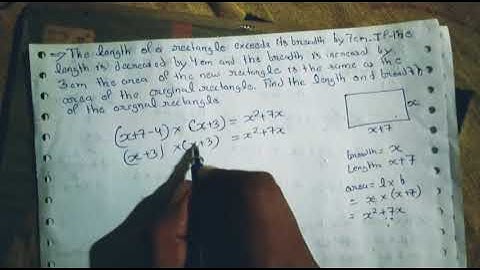 => The length of a rectangle exceeds its breadth by 7cm. If the
length is decreased by 4cm and the breadth is increased by
3cm the area of the new rectangle is the same as the
area of the original rectangle. Find the length and breadth
of the original rectangle.
(x+7-4) × (x+3) = x²+7x
(x+3) × (x+3) = x²+7x
x
x+7
breadth = x
Length = x+7
area = l x b
= x × (x+7)
= x²+7x